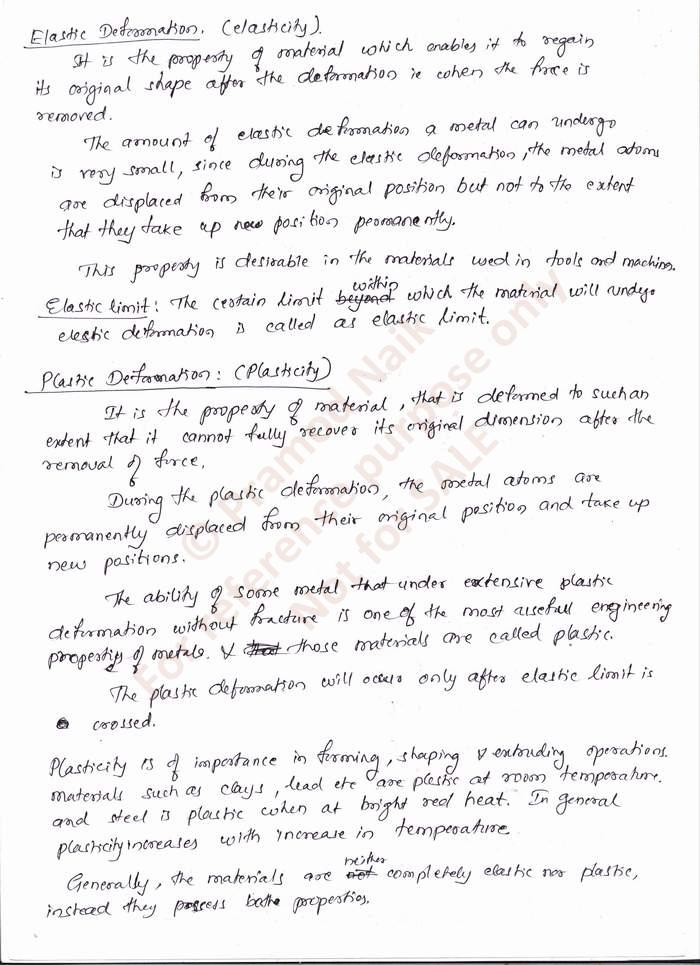 Elastic Deformation. (elasticity).
It is the property of material which enables it to regain
its original shape after the deformation ie when the force is
removed.
The amount of elastic deformation a metal can undergo
is very small, since during the elastic deformation, the metal atoms
are displaced from their original position but not to the extent
that they take up new position permanently.
This property is desirable in the materials used in tools and machines.
within
Elastic limit: The certain limit beyond which the material will undergo
elestic deformation is called as elastic limit.
Plastic Deformation: (Plasticity)
It is the property of material, that is deformed to such an
extent that it cannot fully recover its original dimension after the
removal of force.
During the plastic deformation, the metal atoms are
permanently displaced from their original position and take up
new positions.
The ability of some metal that under extensive plastic
deformation without fracture is one of the most usefull engineering
properties of metals. & that those materials are called plastic.
The plastic deformation will occur only after elastic limit is
crossed.
Plasticity is of importance in forming, shaping & extruding operations.
materials such as clays, lead etc are plestic at room temperature.
and steel is plastic when at bright red heat. In general
plasticity increases with increase in temperature.
neither
Generally, the materials are not completely elastic nor plastic,
instead they possess both properties.
© Pramod Naik
For reference purpose only
Not for SALE